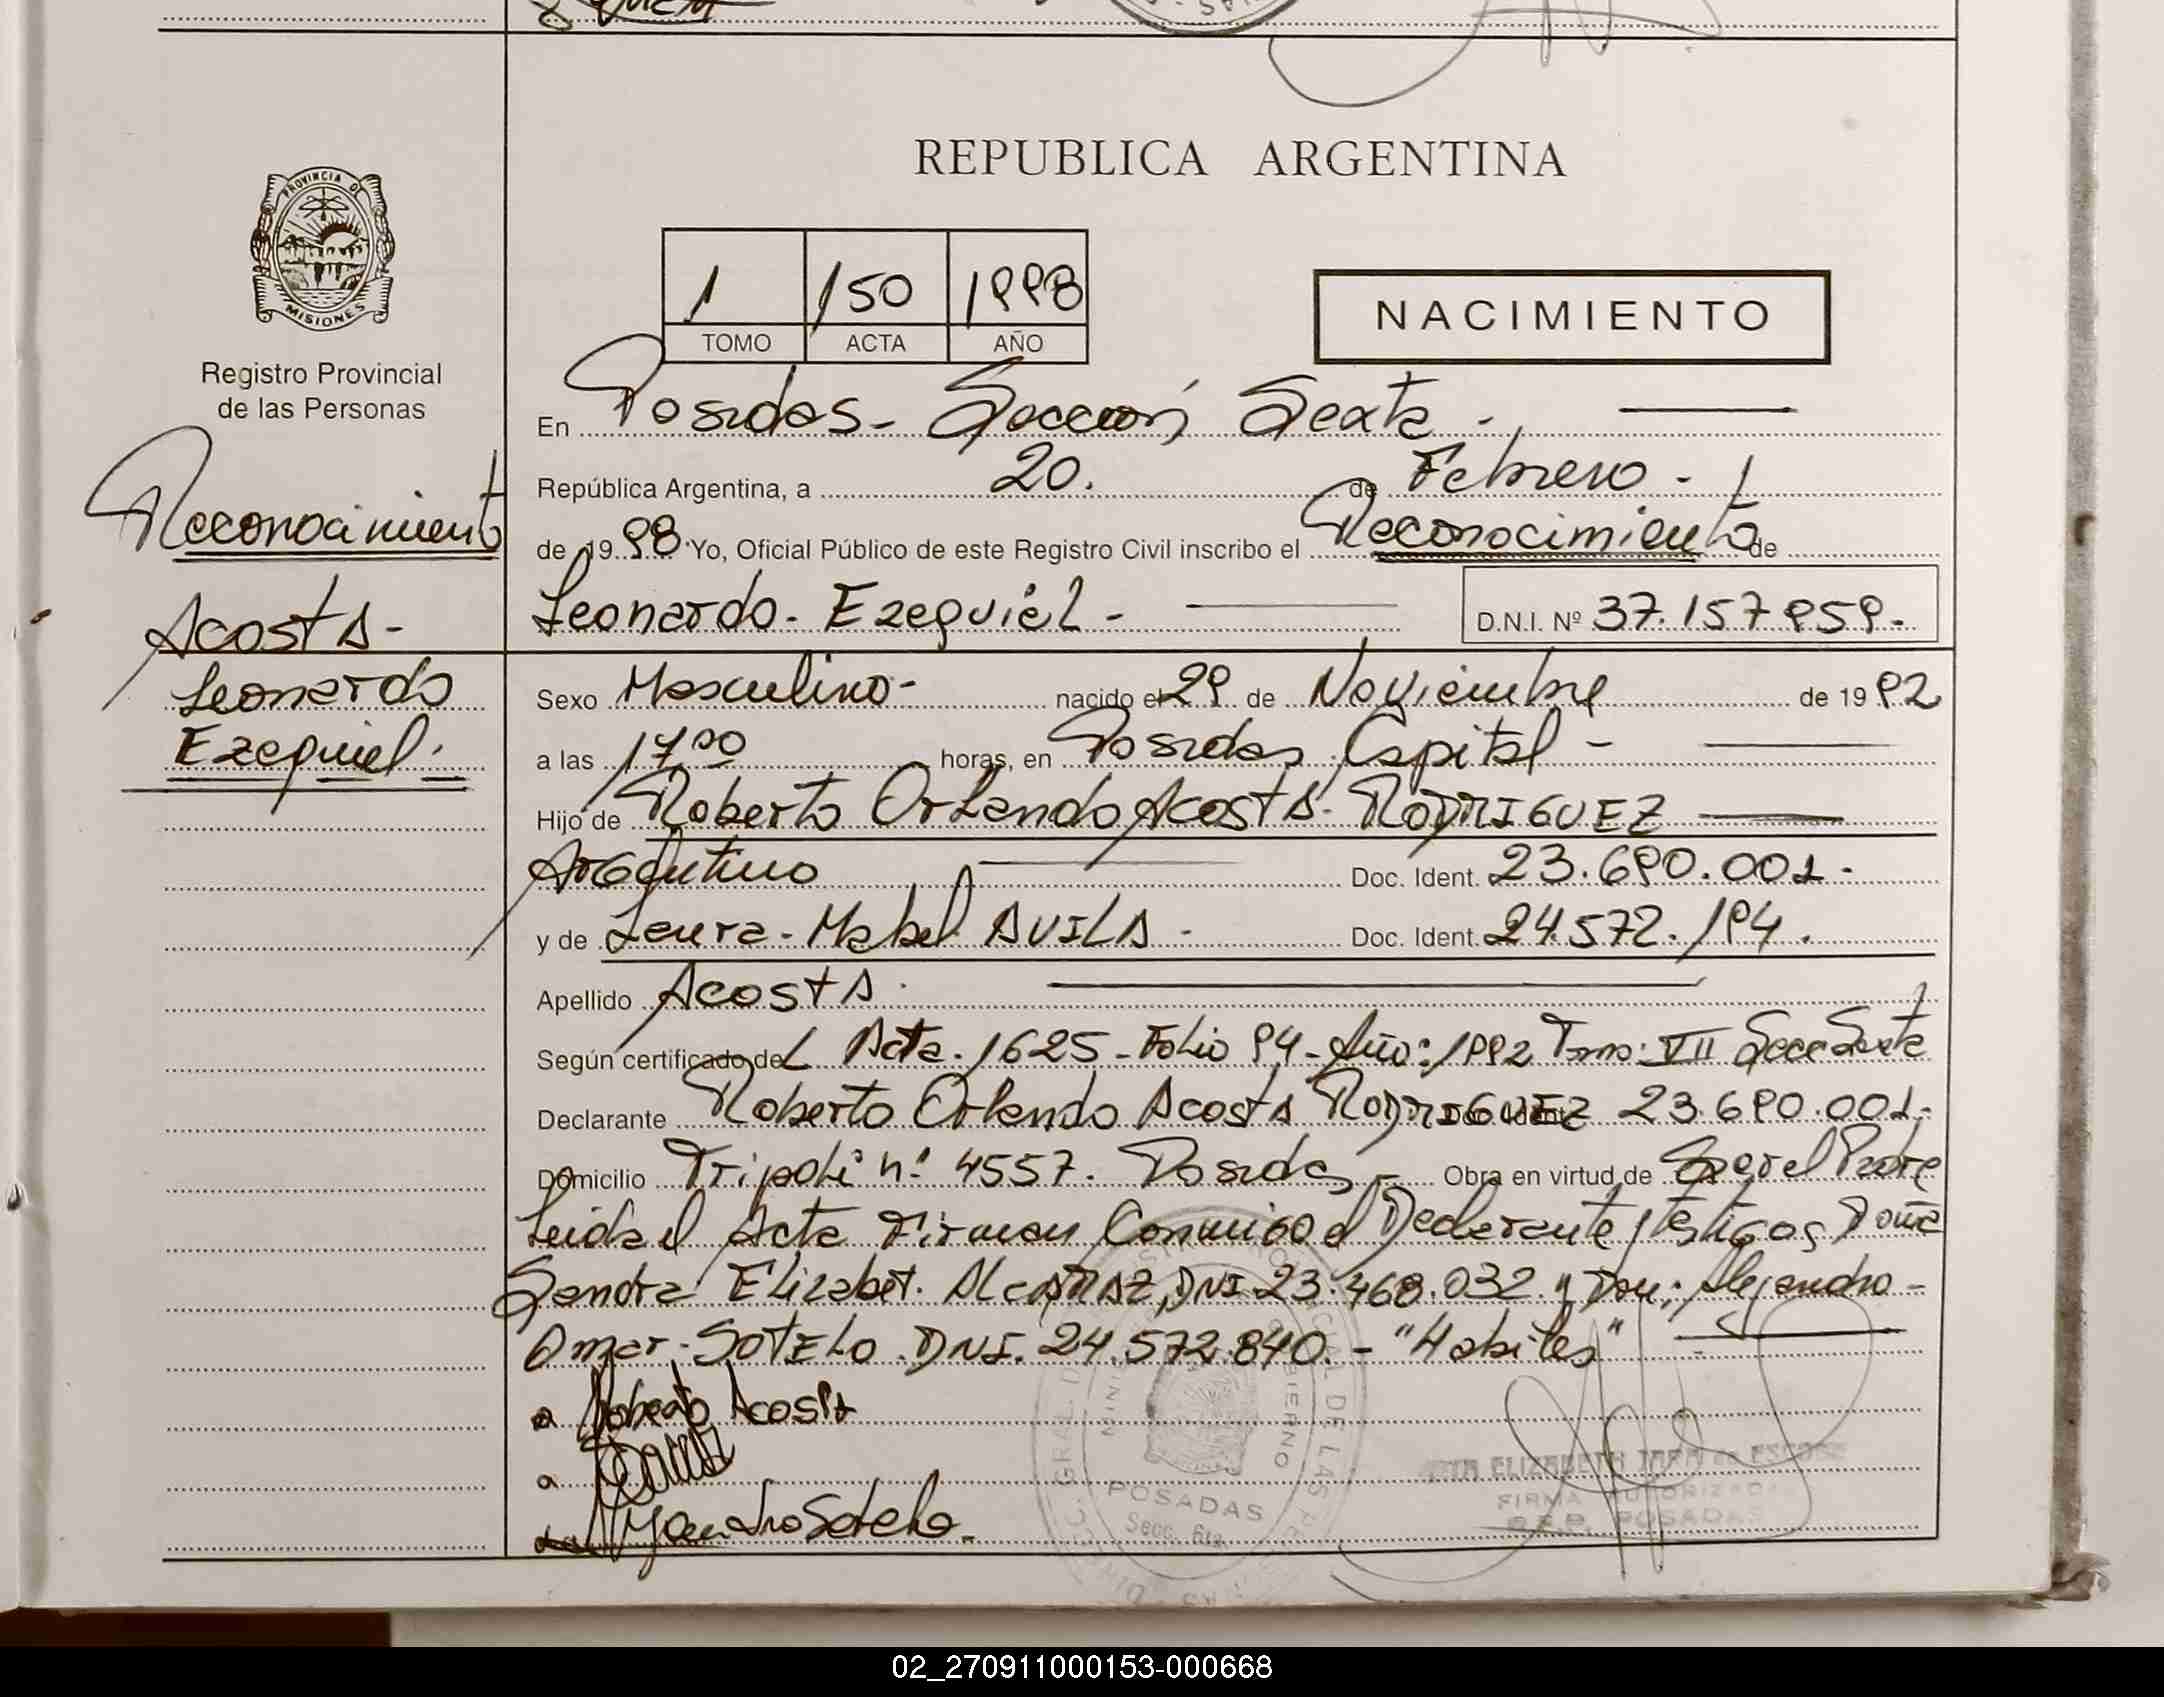 REPUBLICA ARGENTINA
PROVINCIA DE
MISIONES
Registro Provincial
de las Personas
1 150 1998
TOMO ACTA AÑO
NACIMIENTO
Reconocimiento
Acosta-
Leonardo
Ezequiel.
En Posadas- Sección Sexta -
República Argentina, a 20. de Febrero -
de 1998 Yo, Oficial Público de este Registro Civil inscribo el Reconocimiento de
Leonardo- Ezequiel - D.N.I. Nº 37.157.959.-
Sexo Masculino- nacido el 29 de Noviembre de 1992
a las 17,00 horas, en Posadas, Capital -
Hijo de Roberto Orlando Acosta- RODRIGUEZ
Argentino Doc. Ident. 23.690.001.-
y de Laura- Mabel AVILA - Doc. Ident. 24.572.194.
Apellido Acosta.
Según certificado del Acta. 1625- Folio 94- Año: 1992 Tomo: VII Secc Sexta
Declarante Roberto Orlando Acosta RODRIGUEZ 23.690.001-
Domicilio Tripoli nº 4557. Posadas - Obra en virtud de Ser el Padre
Leida el Acta Firman Conmigo el Declarante y testigos Doña
Sandra Elizabet. ALCARAZ, DNI 23.468.032 y Don: Alejandro-
Omar- SOTELO. DNI. 24.572.840. - "Habiles"
a Roberto Acosta
a
Alejandro Sotelo.
POSADAS
Secc. 6ta
FIRMA AUTORIZADA
POSADAS
02_270911000153-000668